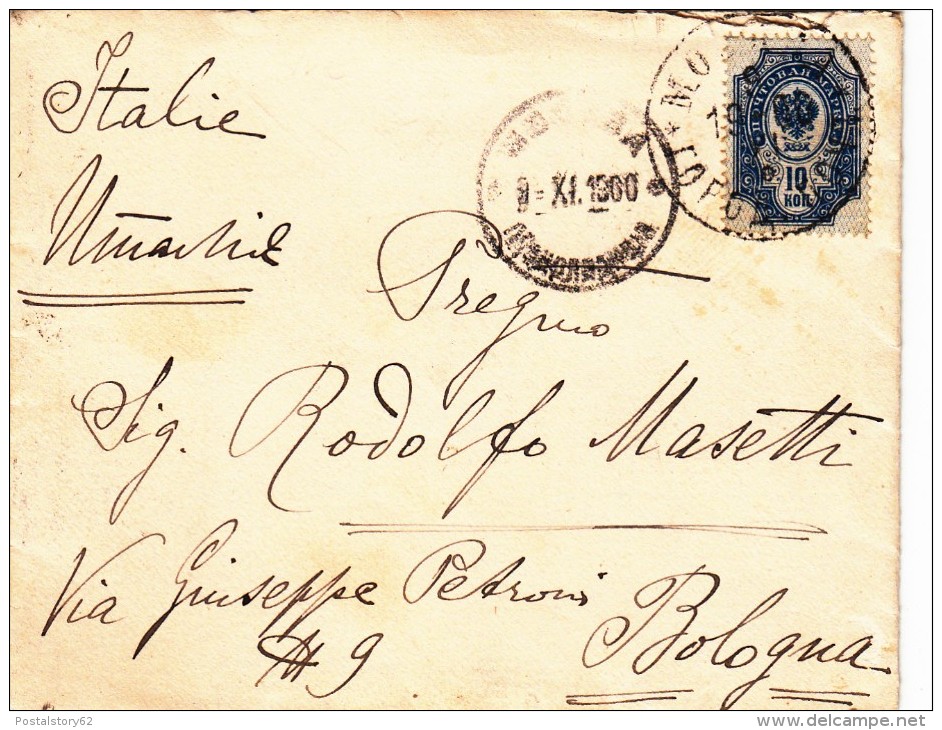 Italie
Италіе
Pregmo
Sig. Rodolfo Masetti
Via Giuseppe Petroni
№ 9
Bologna
ПОЧТОВАЯ МАРКА
10
КОП.
9 - XI. 1900
МО
19
ГОРОД
Postalstory62
www.delcampe.net